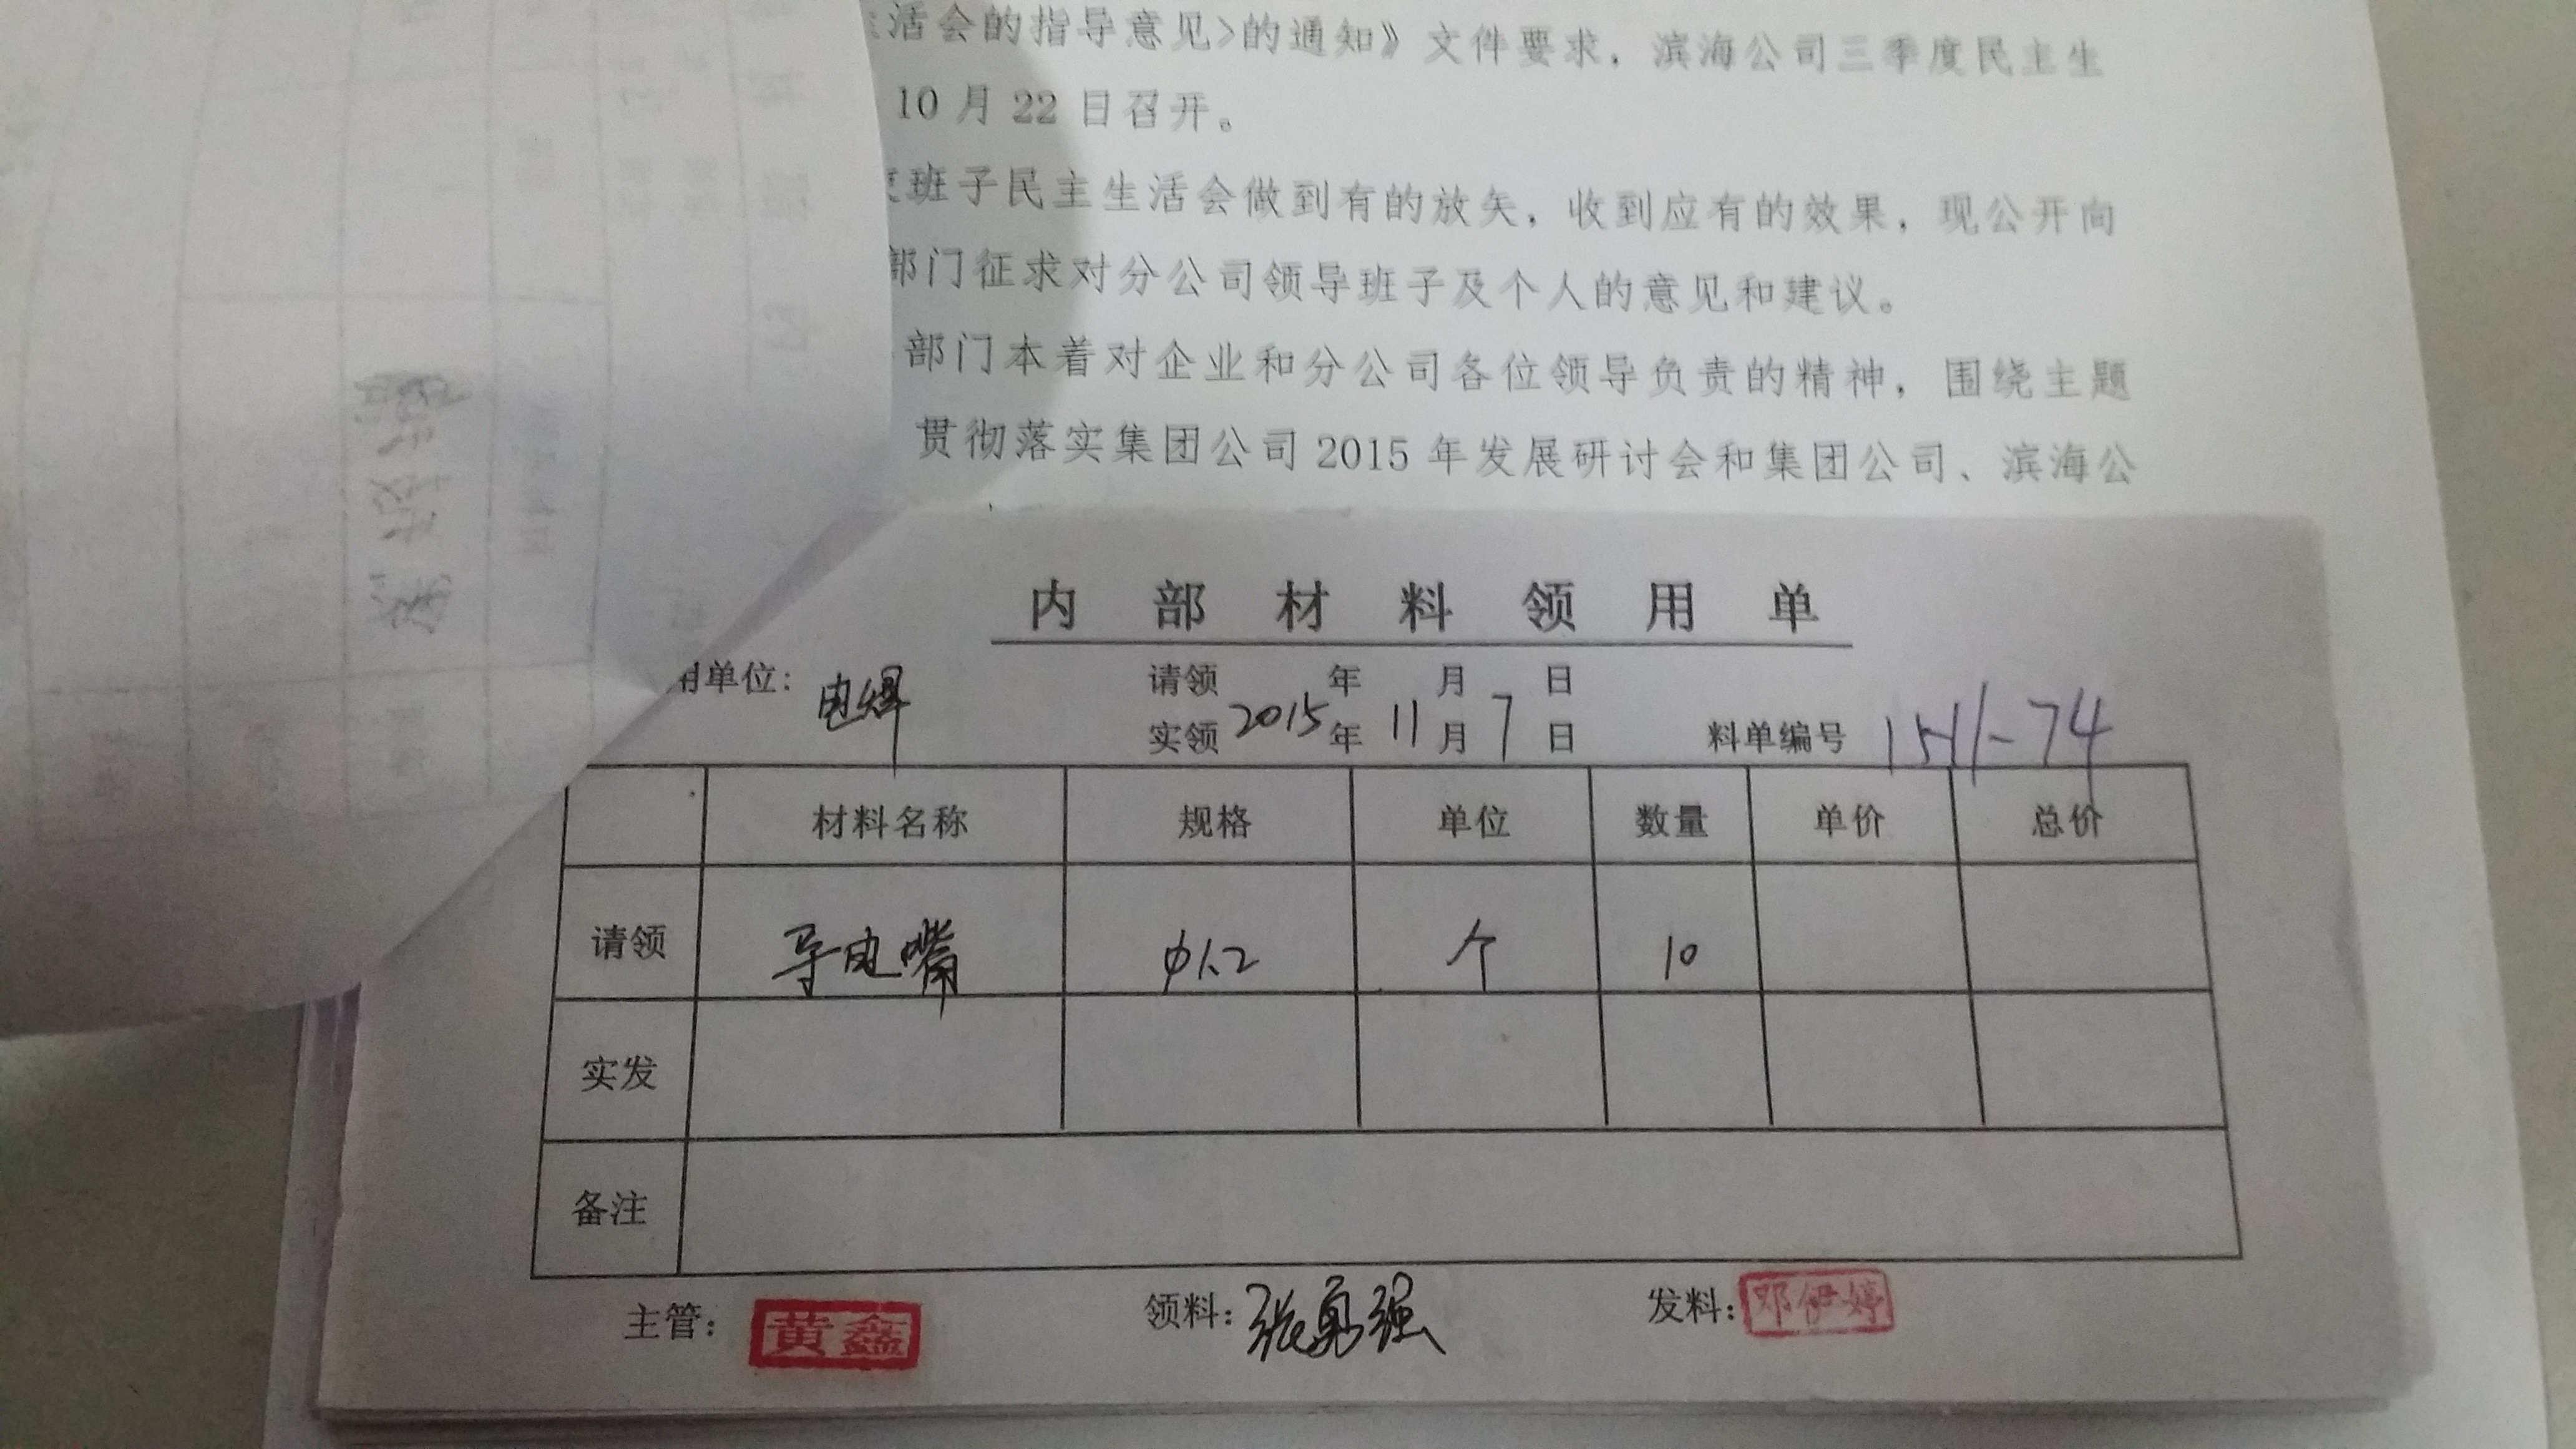 活会的指导意见>的通知》文件要求，滨海公司三季度民主生
10月22日召开。
班子民主生活会做到有的放矢，收到应有的效果，现公开向
部门征求对分公司领导班子及个人的意见和建议。
部门本着对企业和分公司各位领导负责的精神，围绕主题
贯彻落实集团公司2015年发展研讨会和集团公司、滨海公
内部材料领用单
用单位：电焊 请领 年 月 日
实领 2015年 11月 7日 料单编号 1511-74
材料名称 规格 单位 数量 单价 总价
请领 导电嘴 φ1.2 个 10
实发
备注
主管：黄鑫 领料：张勇强 发料：邓伊婷